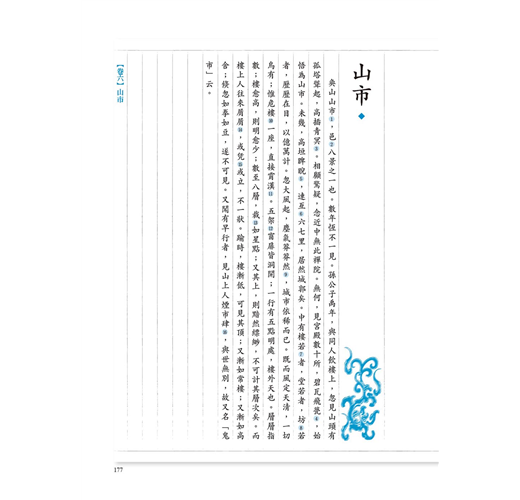 山市
奐山山市,邑八景之一也。數年恆不一見。孫公子禹年,與同人飲樓上,忽見山頭有
孤塔聳起,高插青冥。相顧驚疑,念近中無此禪院。無何,見宮殿數十所,碧瓦飛甍,始
悟為山市。未幾,高垣睥睨,連亙六七里,居然城郭矣。中有樓若者,堂若者,坊若
者,歷歷在目,以億萬計。忽大風起,塵氣莽莽然,城市依稀而已。既而風定天清,一切
烏有;惟危樓一座,直接霄漢。五架窗扉皆洞開;一行有五點明處,樓外天也。層層指
數:樓愈高,則明愈少;數至八層,裁如星點;又其上,則黯然縹緲,不可計其層次矣。而
樓上人往來屑屑,或凭或立,不一狀。踰時,樓漸低,可見其頂;又漸如常樓;又漸如高
舍;倏忽如拳如豆,遂不可見。又聞有早行者,見山上人煙市肆,與世無別,故又名「鬼
市」云。
【卷六】山市
177